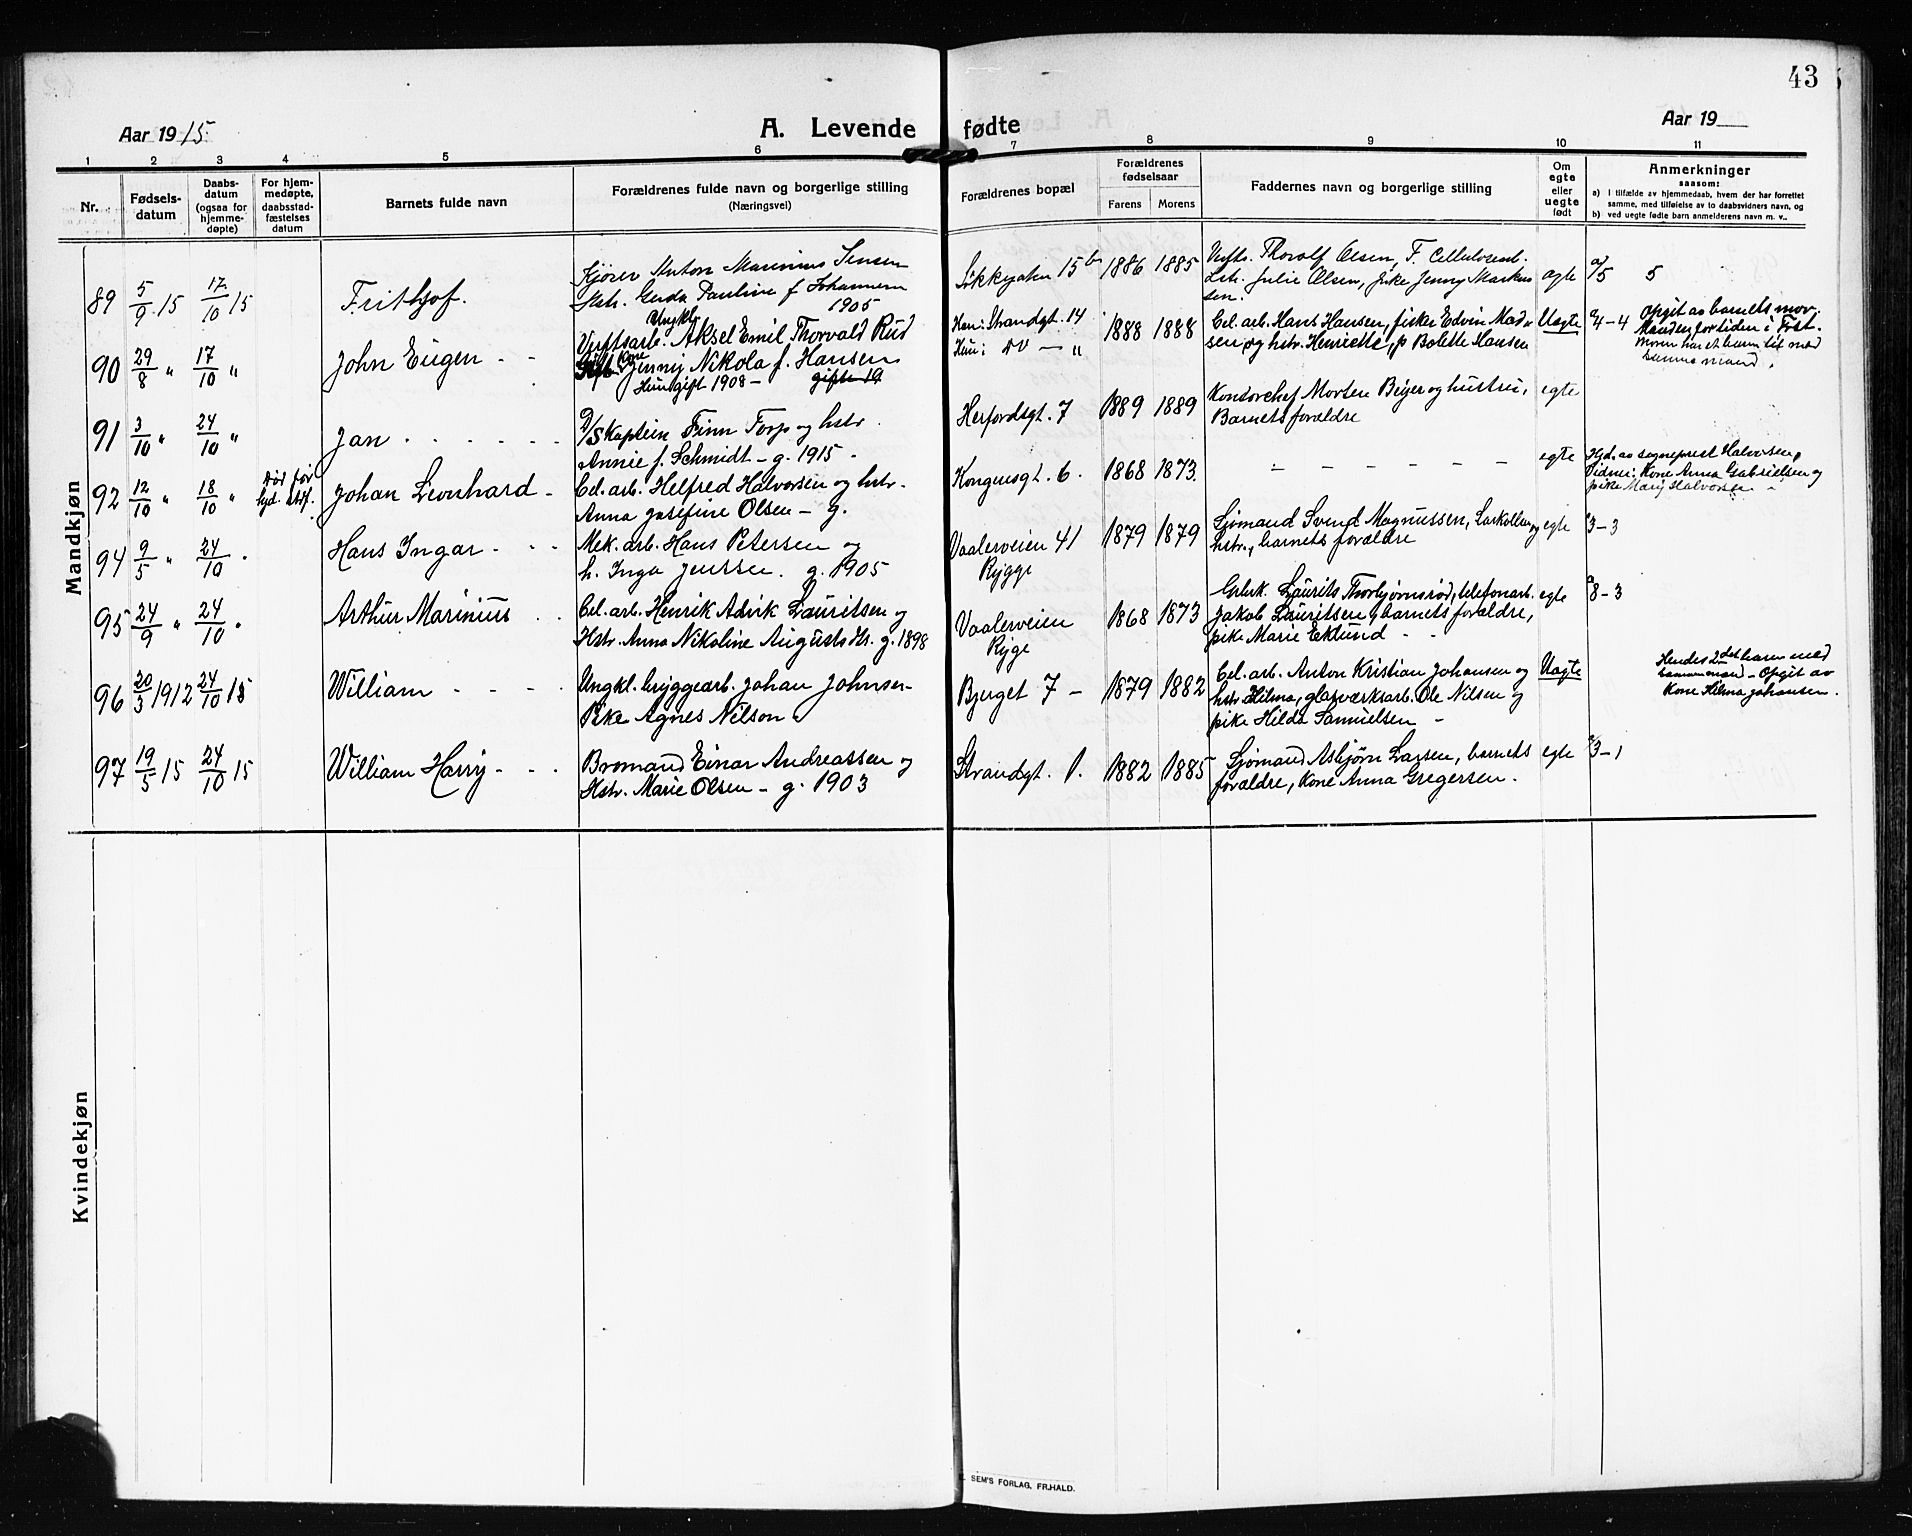 43
Aar 1915
A. Levende fødte
Aar 19
1 2 3 4 5 6 7 8 9 10 11
Nr.
Fødsels-
datum
Daabs-
datum
(ogsaa for
hjemme-
døpte)
For hjem-
medøpte,
daabsstad-
fæstelses
datum
Barnets fulde navn
Forældrenes fulde navn og borgerlige stilling
(Næringsvei)
Forældrenes bopæl
Forældrenes
fødselsaar
Farens Morens
Faddernes navn og borgerlige stilling
Om
egte
eller
uegte
født
Anmerkninger
saasom:
a) i tilfælde av hjemmedaab, hvem der har forrettet
samme, med tilføielse av to daabsvidners navn, og
b) ved uegte fødte barn anmelderens navn m. v..
Mandkjøn
89 5/9 15 17/10 15 Frithjof.
Kjører Anton Marinius Jensen
Hstr. Gerda Pauline f. Johannesen
1905
15 b 1886 1885
Thorolf Olsen, F.
Julie Olsen, Jenny Markus
sen.
egte
5 5
90 29/8 " 17/10 " John Eugen - -
Ungkl.
Verftsarb. Aksel Emil Thorvald Rud
Kone Jenny Nikola f. Hansen
Hun gift 1908 - gifte 19
Han: Strandgt. 14
Hun: do — "
1888 1888
Cel. arb. Hans Hansen, fisker Edvin Mad-
sen og hstr. Henriette, p. Bolette Hansen
Uegte
4-4
Opgit av barnets mor.
Manden for tiden i
Moren har et barn til med
samme mand.
91 3/10 " 24/10 " Jan - - - - - -
D/S Kaptein Finn Torp og hstr.
Annie f. Schmidt - g. 1915 -
Herfordsgt. 7 1889 1889
Kontorchef Morten Beyer og hustru,
Barnets forældre
egte
92 12/10 " 18/10 " Død før
stdf.
Johan Leonhard -
Cel. arb. Helfred Halvorsen og hstr.
Anna Josefine Olsen - g.
Kongensgt. 6. 1868 1873.
- - - - - - -
egte
Hjd. av sogneprest Halvorsen,
Vidner: Kone Anna Gabrielsen og
pike Mary Halvorsen -
94 9/5 " 24/10 " Hans Ingar - - -
Mek. arb. Hans Petersen og
h. Inga Jenssen. g. 1905
Vaalerveien 41
Rygge
1879 1879
Sjømand Svend Magnussen, Larkollen og
hstr., barnets forældre
egte
3-3
95 24/9 " 24/10 " Arthur Marinius - -
Cel. arb. Henrik Advik Lauritsen og
Hstr. Anna Nikoline Augustsdtr. g. 1898
Vaalerveien
Rygge
1868 1873
Laurits Thorbjørnsrød, telefonarb.
Jakob Lauritsen, barnets forældre,
pike Marie Eklund - -
egte
8-3
96 20/3 1912 24/10 15 William - - - -
Ungkl. bryggearb. Johan Johnsen-
Pike Agnes Nilson
Bjerget 7 - 1879 1882
Cel. arb. Anton Kristian Johansen og
hstr Hilma, glasværksarb. Ole Nilsen og
pike Hilda Samuelsen -
Uegte
Hendes 2det barn med
samme mand - Opgit av
Kone Hilma Johansen.
97 19/5 15 24/10 15 William Harry - - -
Bromand Einar Andreassen og
Hstr. Marie Olsen - g. 1903
Strandgt. 1. 1882 1885
Sjømand Asbjørn Larsen, barnets
forældre, Kone Anna Gregersen.
egte
3-1
Kvindekjøn
SEM'S FORLAG, FR.HALD.